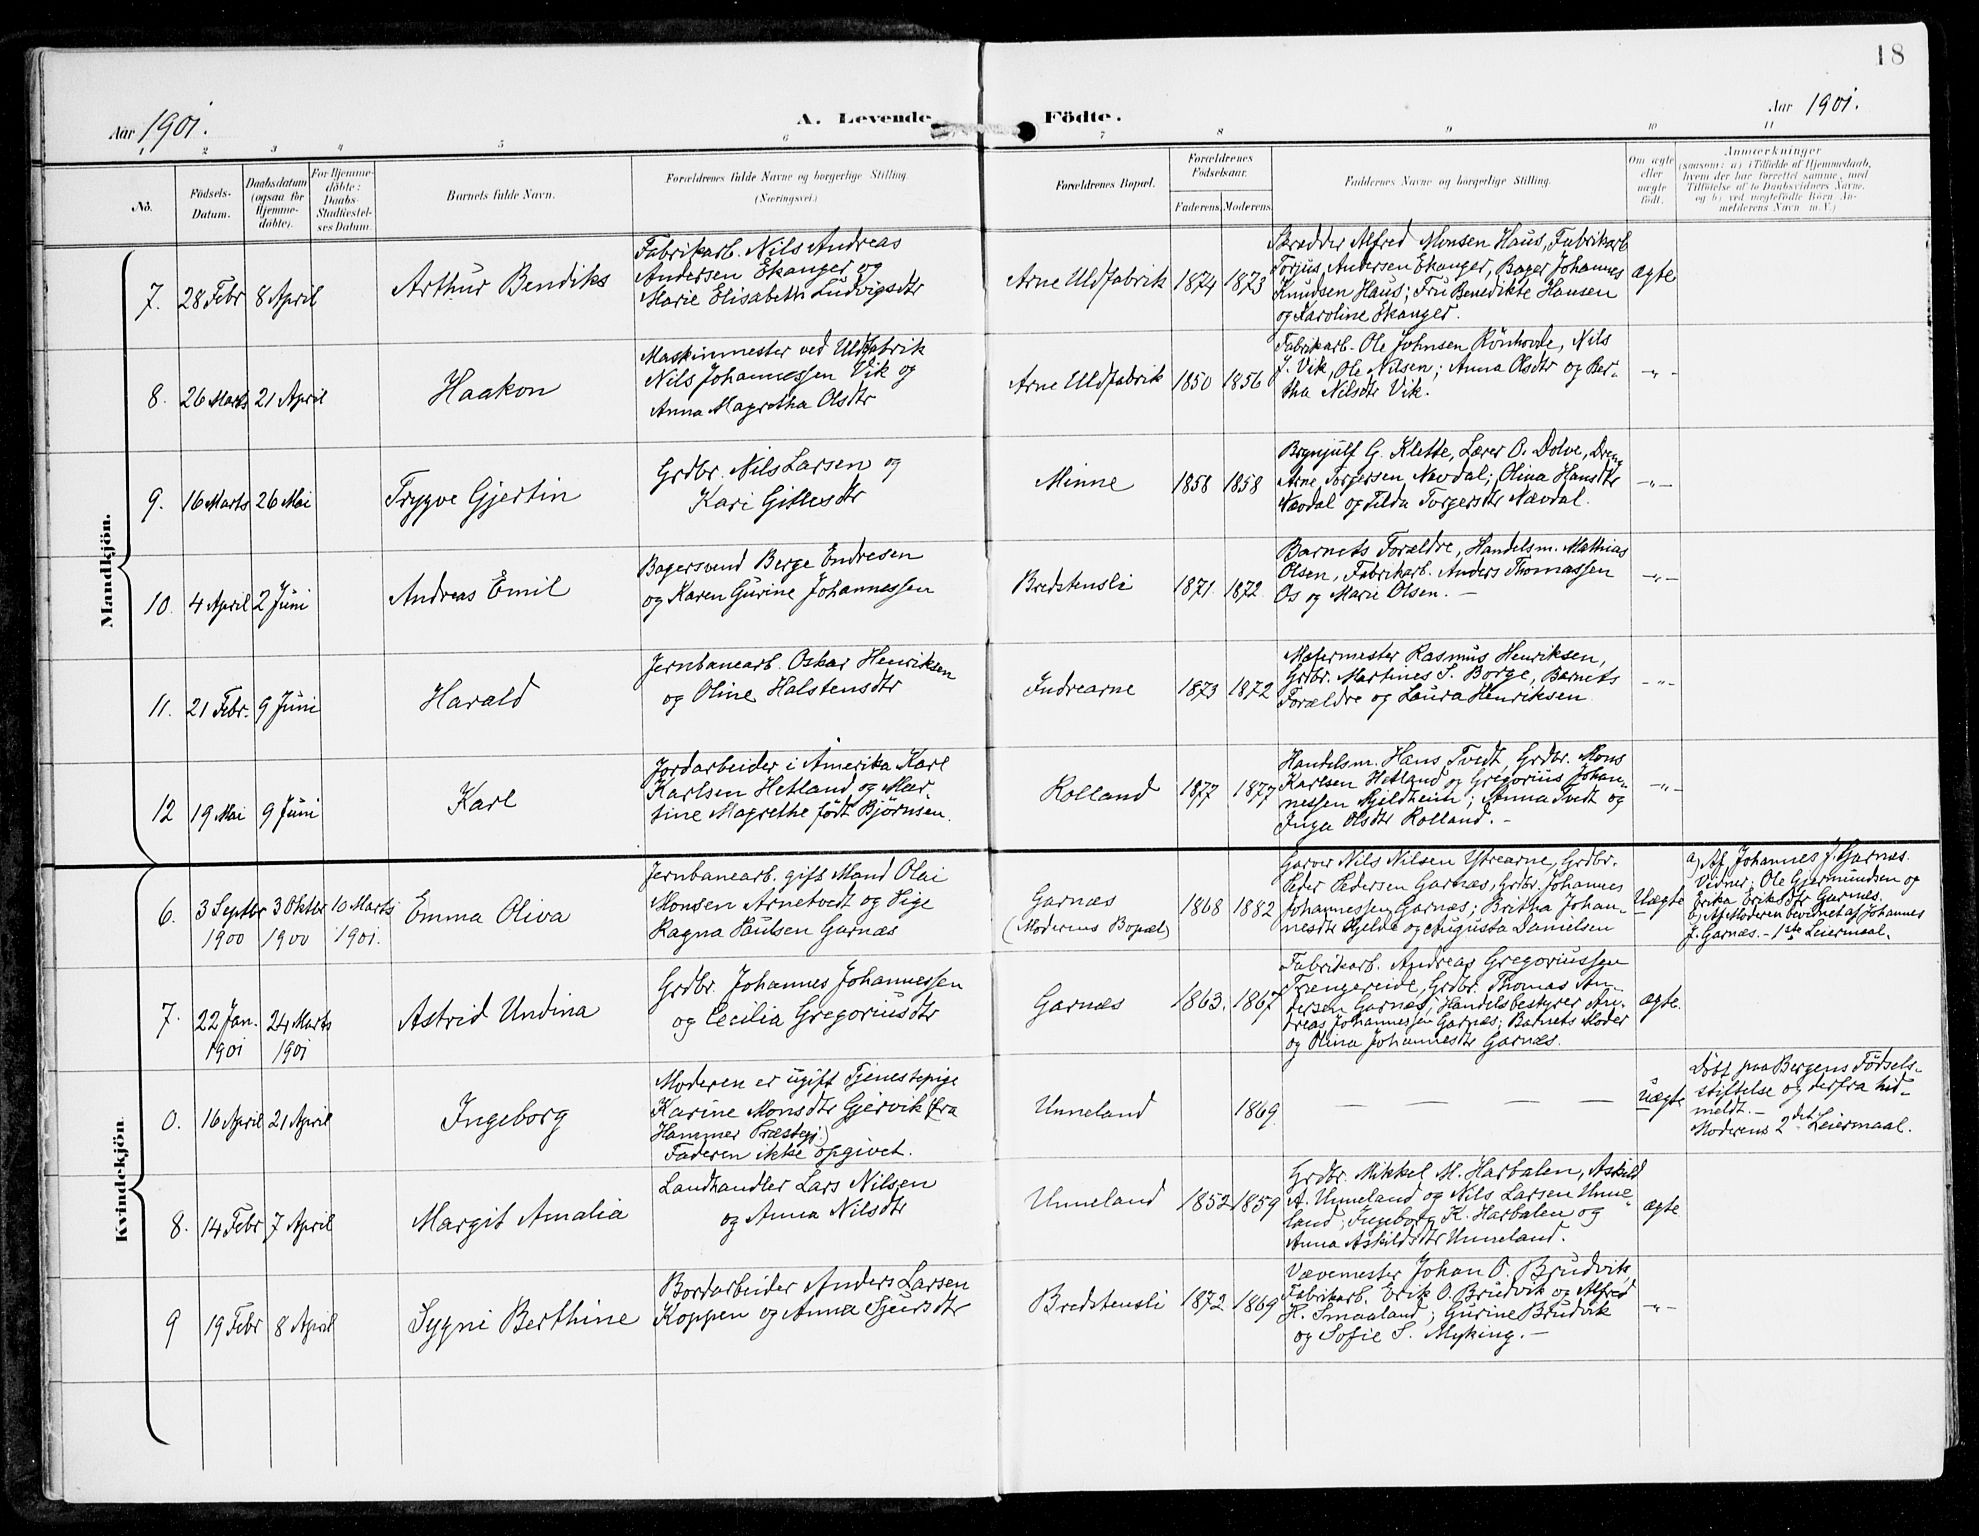 18
Aar 1901.
A. Levende Födte.
Aar 1901.
1 2 3 4 5 6 7 8 9 10 11
No.
Födsels-
Datum.
Daabsdatum
(ogsaa for
Hjemme-
döbte).
For Hjemme-
döbte:
Daabs-
Stadfæstel-
ses Datum.
Barnets fulde Navn.
Forældrenes fulde Navne og borgerlige Stilling.
(Næringsvei.)
Forældrenes Bopæl.
Forældrenes
Födselsaar.
Faderens. Moderens.
Faddernes Navne og borgerlige Stilling.
Om ægte
eller
uægte
födt.
Anmærkninger
(saasom: a) i Tilfælde af Hjemmedaab,
hvem der har forrettet samme, med
Tilföielse af to Daabsvidners Navne,
og b) ved uægtefödte Börn An-
melderens Navn m. V.)
Mandkjön.
7. 28 Febr 8 April
Arthur Bendiks
Fabrikarb. Nils Andreas
Andersen Ekanger og
Marie Elisabeth Ludvigsdtr
Arne Uldfabrik 1874 1873
Skrædder Alfred Monsen Haus, Fabrikarb
Torjus Andersen Ekanger, Bager Johannes
Knudsen Haus; Fru Benedikte Hansen
og Karoline Ekanger.
ægte
8. 26 Marts 21 April
Haakon
Maskinmester ved Uldfabrik
Nils Johannessen Vik og
Anna Magretha Olsdtr
Arne Uldfabrik 1850 1856
Fabrikarb. Ole Johnsen Rönhovde, Nils
J. Vik, Ole Nilsen; Anna Olsdtr og Ber-
tha Nilsdtr Vik.
-"-
9. 16 Marts 26 Mai
Trygve Gjertin
Grdbr. Nils Larsen og
Kari Gittlesdtr
Minne 1858 1858
Brynjulf G. Klette, Lærer O. Dolve, Dreng
Arne Torgersen Nævdal; Olina Hansdtr
Nævdal og Tilda Torgersdtr Nævdal.
-"-
10. 4 April 2 Juni
Andreas Emil
Bagersvend Berge Endresen
og Karen Gurine Johannessen
Bredstensli 1871. 1872.
Barnets Forældre, Handelsm. Mathias
Olsen, Fabrikarb. Anders Thomassen
Os og Marie Olsen. -
-"-
11. 21 Febr. 9 Juni
Harald
Jernbanearb. Oskar Henriksen
og Oline Halstensdtr
Indrearne 1873 1872
Malermester Rasmus Henriksen,
Grdbr. Martines S. Borge, Barnets
Forældre og Laura Henriksen
-"-
12 19 Mai 9 Juni
Karl
Jordarbeider i Amerika Karl
Karlsen Hetland og Mar-
tine Magrethe født Bjørnsen.
Rolland 1877 1877
Handelsm. Hans Tvedt, Grdbr. Mons
Karlsen Hetland og Gregorius Johan-
nessen Mjeldheim; Anna Tvedt og
Inga Olsdtr Rolland. -
-"-
Kvindekjön.
6. 3 Septbr 3 Oktbr 10 Marts
1900 1900 1901.
Emma Oliva
Jernbanearb. gift Mand Olai
Monsen Arnetvedt og Pige
Ragna Paulsen Garnæs
Garnæs
(Moderens Bopæl)
1868 1882
Garver Nils Nilsen Ytrearne, Grdbr.
Peder Pedersen Garnæs, Grdbr. Johannes
Johannessen Garnæs; Britha Johan-
nesdtr Mjelde og Augusta Danielsen
Uægte
a) Af Johannes J. Garnæs.
Vidner: Ole Gjermundsen og
Erika Eriksdtr Garnæs.
b) Af Moderen bevidnet af Johannes
J. Garnæs. - 1ste Leiermaal.
7. 22 Jan. 24 Marts
1901 1901
Astrid Undina
Grdbr. Johannes Johannessen
og Cecilia Gregoriusdtr
Garnæs 1863. 1867
Fabrikarb. Andreas Gregoriussen
Trengereide, Grdbr. Thomas An-
dersen Garnæs, Handelsbestyrer An-
dreas Johannessen Garnæs; Barnets Moder
og Olina Johannesdtr Garnæs.
ægte.
0. 16 April 21 April
Ingeborg
Moderen er ugift Tjenestepige
Karine Monsdtr Gjervik (fra
Hammer Præstegj.)
Faderen ikke opgivet.
Unneland 1869
— — — — —
uægte
Döbt paa Bergens Födsels-
stiftelse og derfra hid-
meldt. -
Moderens 2det Leiermaal.
8. 14 Febr 7 April
Margit Amalia
Landhandler Lars Nilsen
og Anna Nilsdtr
Unneland 1852 1859
Grdbr. Mikkel M. Harbalen, Askild
A. Unneland og Nils Larsen Unne-
land; Ingeborg K. Harbalen og
Anna Askildsdtr Unneland.
ægte
9 19 Febr 8 April
Sygni Berthine
Bordarbeider Anders Larsen
Koppen og Anna Sjursdtr
Bredstensli 1872 1869
Vævemester Johan O. Brudvik,
Fabrikarb. Erik O. Brudvik og Alfred
H. Smaaland; Gurine Brudvik
og Sofie S. Myking. -
-"-